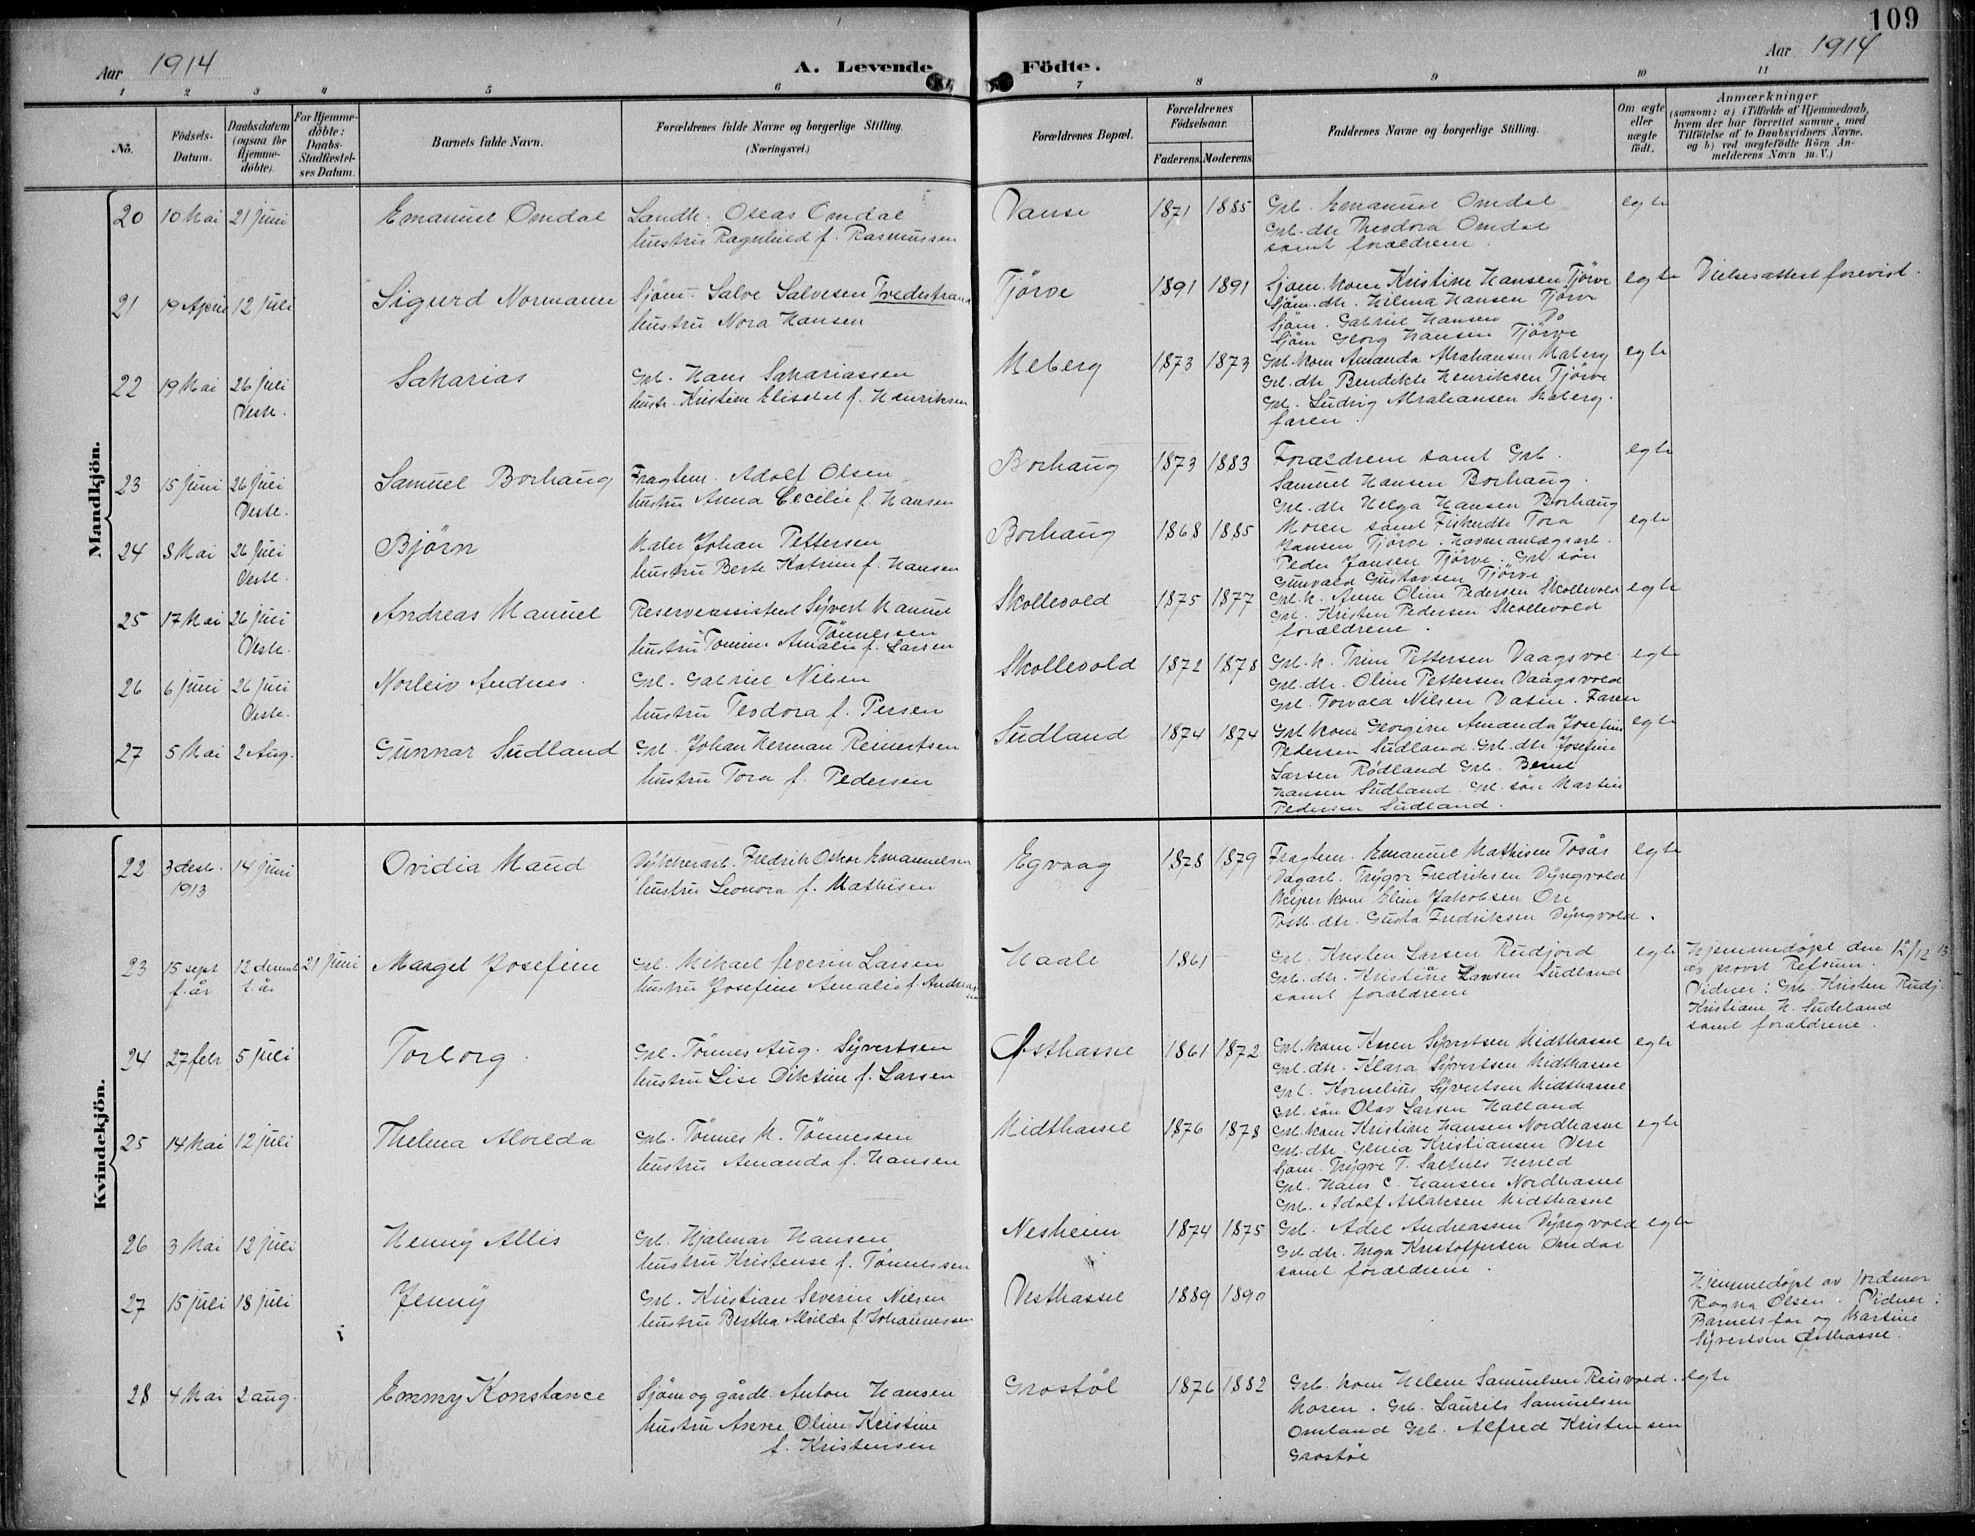 109
Aar 1914
A. Levende Födte.
Aar 1914
1 2 3 4 5 6 7 8 9 10 11
No.
Födsels-
Datum.
Daabsdatum
(ogsaa for
Hjemme-
döbte).
For Hjemme-
döbte:
Daabs-
Stadfæstel-
ses Datum.
Barnets fulde Navn.
Forældrenes fulde Navne og borgerlige Stilling.
(Næringsvei.)
Forældrenes Bopæl.
Forældrenes
Födselsaar.
Faderens. Moderens.
Faddernes Navne og borgerlige Stilling.
Om ægte
eller
uægte
födt.
Anmærkninger
(saasom: a) i Tilfælde af Hjemmedaab,
hvem der har forrettet samme, med
Tilföielse af to Daabsvidners Navne,
og b) ved uægtefödte Börn An-
melderens Navn m. V.)
Mandkjön.
20 10 Mai 21 juni Emanuel Omdal
Landh. Oseas Omdal
hustru Ragnhild f. Rasmussen
Vanse 1871 1885
Grb. Emanuel Omdal
Grb. dtr Theodora Omdal
samt forældrene.
egte
21 19 April 12 juli Sigurd Normann
Sjöm. Salve Salvesen Tvedestrand
hustru Nora Hansen
Tjörve 1891 1891
Sjöm. kone Kristine Hansen Tjörve
Sjöm. dtr. Hilma Hansen Tjörve
Sjöm. Gabriel Hansen
Sjöm Georg Hansen Tjörve
egte
Vielsesattest forevist.
22 19 Mai 26 juli
Veste.
Sakarias
Grb. Hans Sakariassen
hustr. Kristine Elisabet f. Henriksen
Meberg 1873 1873
Grb. kone Amanda Abrahamsen Maberg
Grb. dtr Bendikte Henriksen Tjörve
Grb. Ludvig Abrahamsen Maberg.
faren.
egte
23 15 juni 26 juli
Veste.
Samuel Borhaug
Fragtem. Adolf Olsen
hustru Anna Cecelie f. Hansen
Borhaug 1873 1883
Forældrene samt Grb.
Samuel Hansen Borhaug.
Grb. dtr Helga Hansen Borhaug
egte
24 8 Mai 26 juli
Veste.
Björn
Maler Johan Pettersen
hustru Berte Katrine f. Hansen
Borhaug 1868 1885
Moren samt Fiskerdtr Tora
Jansen Tjörve. Havneanlægsarb.
Peder Jansen Tjörve. Grb. sön
Gunvald Gustavsen Tjörve
egte
25 17 Mai 26 juli
Veste.
Andreas Manuel
Reserveassistent Syvert Manuel
Tönnessen
hustru Tomine Amalie f. Larsen
Skollevold 1875 1877
Grb. k. Anne Oline Pedersen Skollevold
Grb. Kristen Pedersen Skollevold
forældrene.
egte
26 6 juni 26 juli
Veste.
Norleiv Andres.
Grb. Gabriel Nilsen
hustru Teodora f. Persen
Skollevold 1872 1878
Grb. k. Trine Pettersen Vaagsvol
Grb. dtr. Oline Pettersen Vaagsvold
Grb. Torvald Nilsen Vatne. Faren
egte
27 5 Mai 2 Aug. Gunnar Sudland
Grb. Johan Herman Reinertsen
hustru Tora f. Pedersen
Sudland 1874 1874
Grb. kone Georgine Amanda Josefine
Pedersen Sudland. Grb. dtr. Josefine
Larsen Rödland Grb. Bernt
Hansen Sudland. Grb. sön Martin
Pedersen Sudland.
egte
Kvindekjön.
22 3 desb.
1913
14 juni Ovidia Maud
Fredrik Oskar Emanuelsen
hustru Leonora f. Mathisen
Egvaag 1878 1879
Fragtem. Emanuel Mathisen Tosås
Dagarb. Trygve Fredriksen Dyngvold
Skiper kone Eline Jakobsen Ore
Postb. dtr. Gusta Fredriksen Dyngvold.
egte
23 15 sept
f. år
12 desemb
f. år
21 juni Margel Josefine
Grb. Mikael Severin Larsen
hustru Josefine Amalie f. Andreassen
Haale 1861 –
Grb. Kristen Larsen Rudjord
Grb. dtr. Kristine Hansen Sudland
samt forældrene
egte
Hjemmedöpt den 12/12 13
av provst Refsum.
Vidner: Grb. Kristen Rudj.
Kristiane H. Sudeland
samt forældrene.
24 27 febr 5 juli Torborg.
Grb. Tönnes Aug. Syvertsen
hustru Lise Diktine f. Larsen
Østhassel 1861 1872
Grb. kone Karen Syvertsen Midthassel
Grb. dtr. Klara Syvertsen Midthassel
Grb. Kornelius Syvertsen Midthassel
Grb. sön Olav Larsen Halland
egte
25 14 Mai 12 juli Thelma Alvilda
Grb. Tönnes M. Tönnessen
hustru Amanda f. Hansen
Midthassel 1876 1878
Grb. kone Kristine Hansen Nordhassel
Grb. dtr. Genia Kristiansen Vere
Sjöm. Trygve T. Saltnes Herred
Grb. Hans C. Hansen Nordhassel
Grb. Adolf Aslaksen Midthassel
egte
26 3 Mai 12 juli Henny Allis
Grb. Hjalmar Hansen
hustru Kristense f. Tönnessen
Nesheim 1874 1875
Grb. Adel Andreassen Dyngvold
Grb dtr. Inga Kristoffersen Omdal
samt forældrene.
egte
27 15 juli 18 juli Jenny
Grb. Kristian Severin Nilsen
hustru Bertha Alvilde f. Johannessen
Vesthassel 1889 1890
Hjemmedöpt av Jordmor
Ragna Olsen. Vidner:
Barnets far og Martine
Syvertsen Østhassel.
28 4 Mai 2 aug. Emmy Konstance
Sjöm og gårdb. Anton Hansen
hustru Anne Oline Kristine
f. Kristensen
Grostöl 1876 1882
Grb. kone Helene Samuelsen Reisvold.
Moren. Grb. Laurits Samuelsen
Omland Grb. Alfred Kristensen
Grostöl
egte